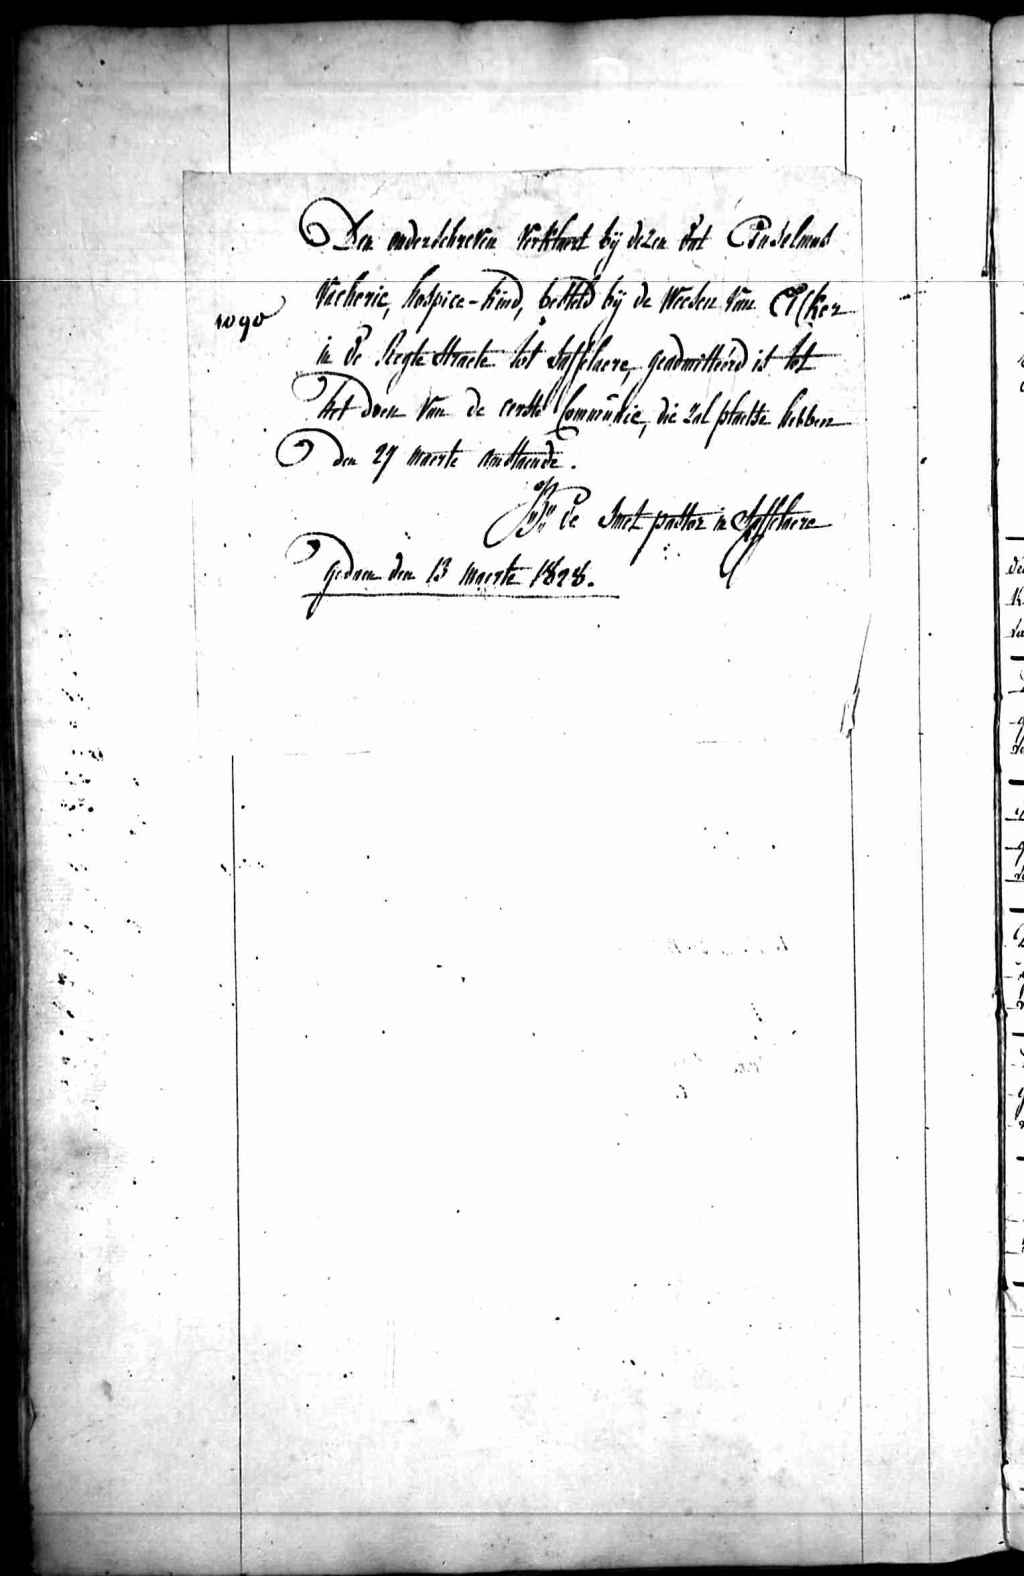 Den onderschreven verklaert bÿ dezen dat Anselmus
Vacherie, hospice-kind, besteld bÿ de Weesen van Acker
1090
in de Leegte Straete tot Saffelaere, geadmitteérd is tot
het doen van de eerste Commúnie, die zal plaetse hebben
den 27 maerte aenstaende.
de Smet pastor in Saffelaere
gedaen den 13 maerte 1828.